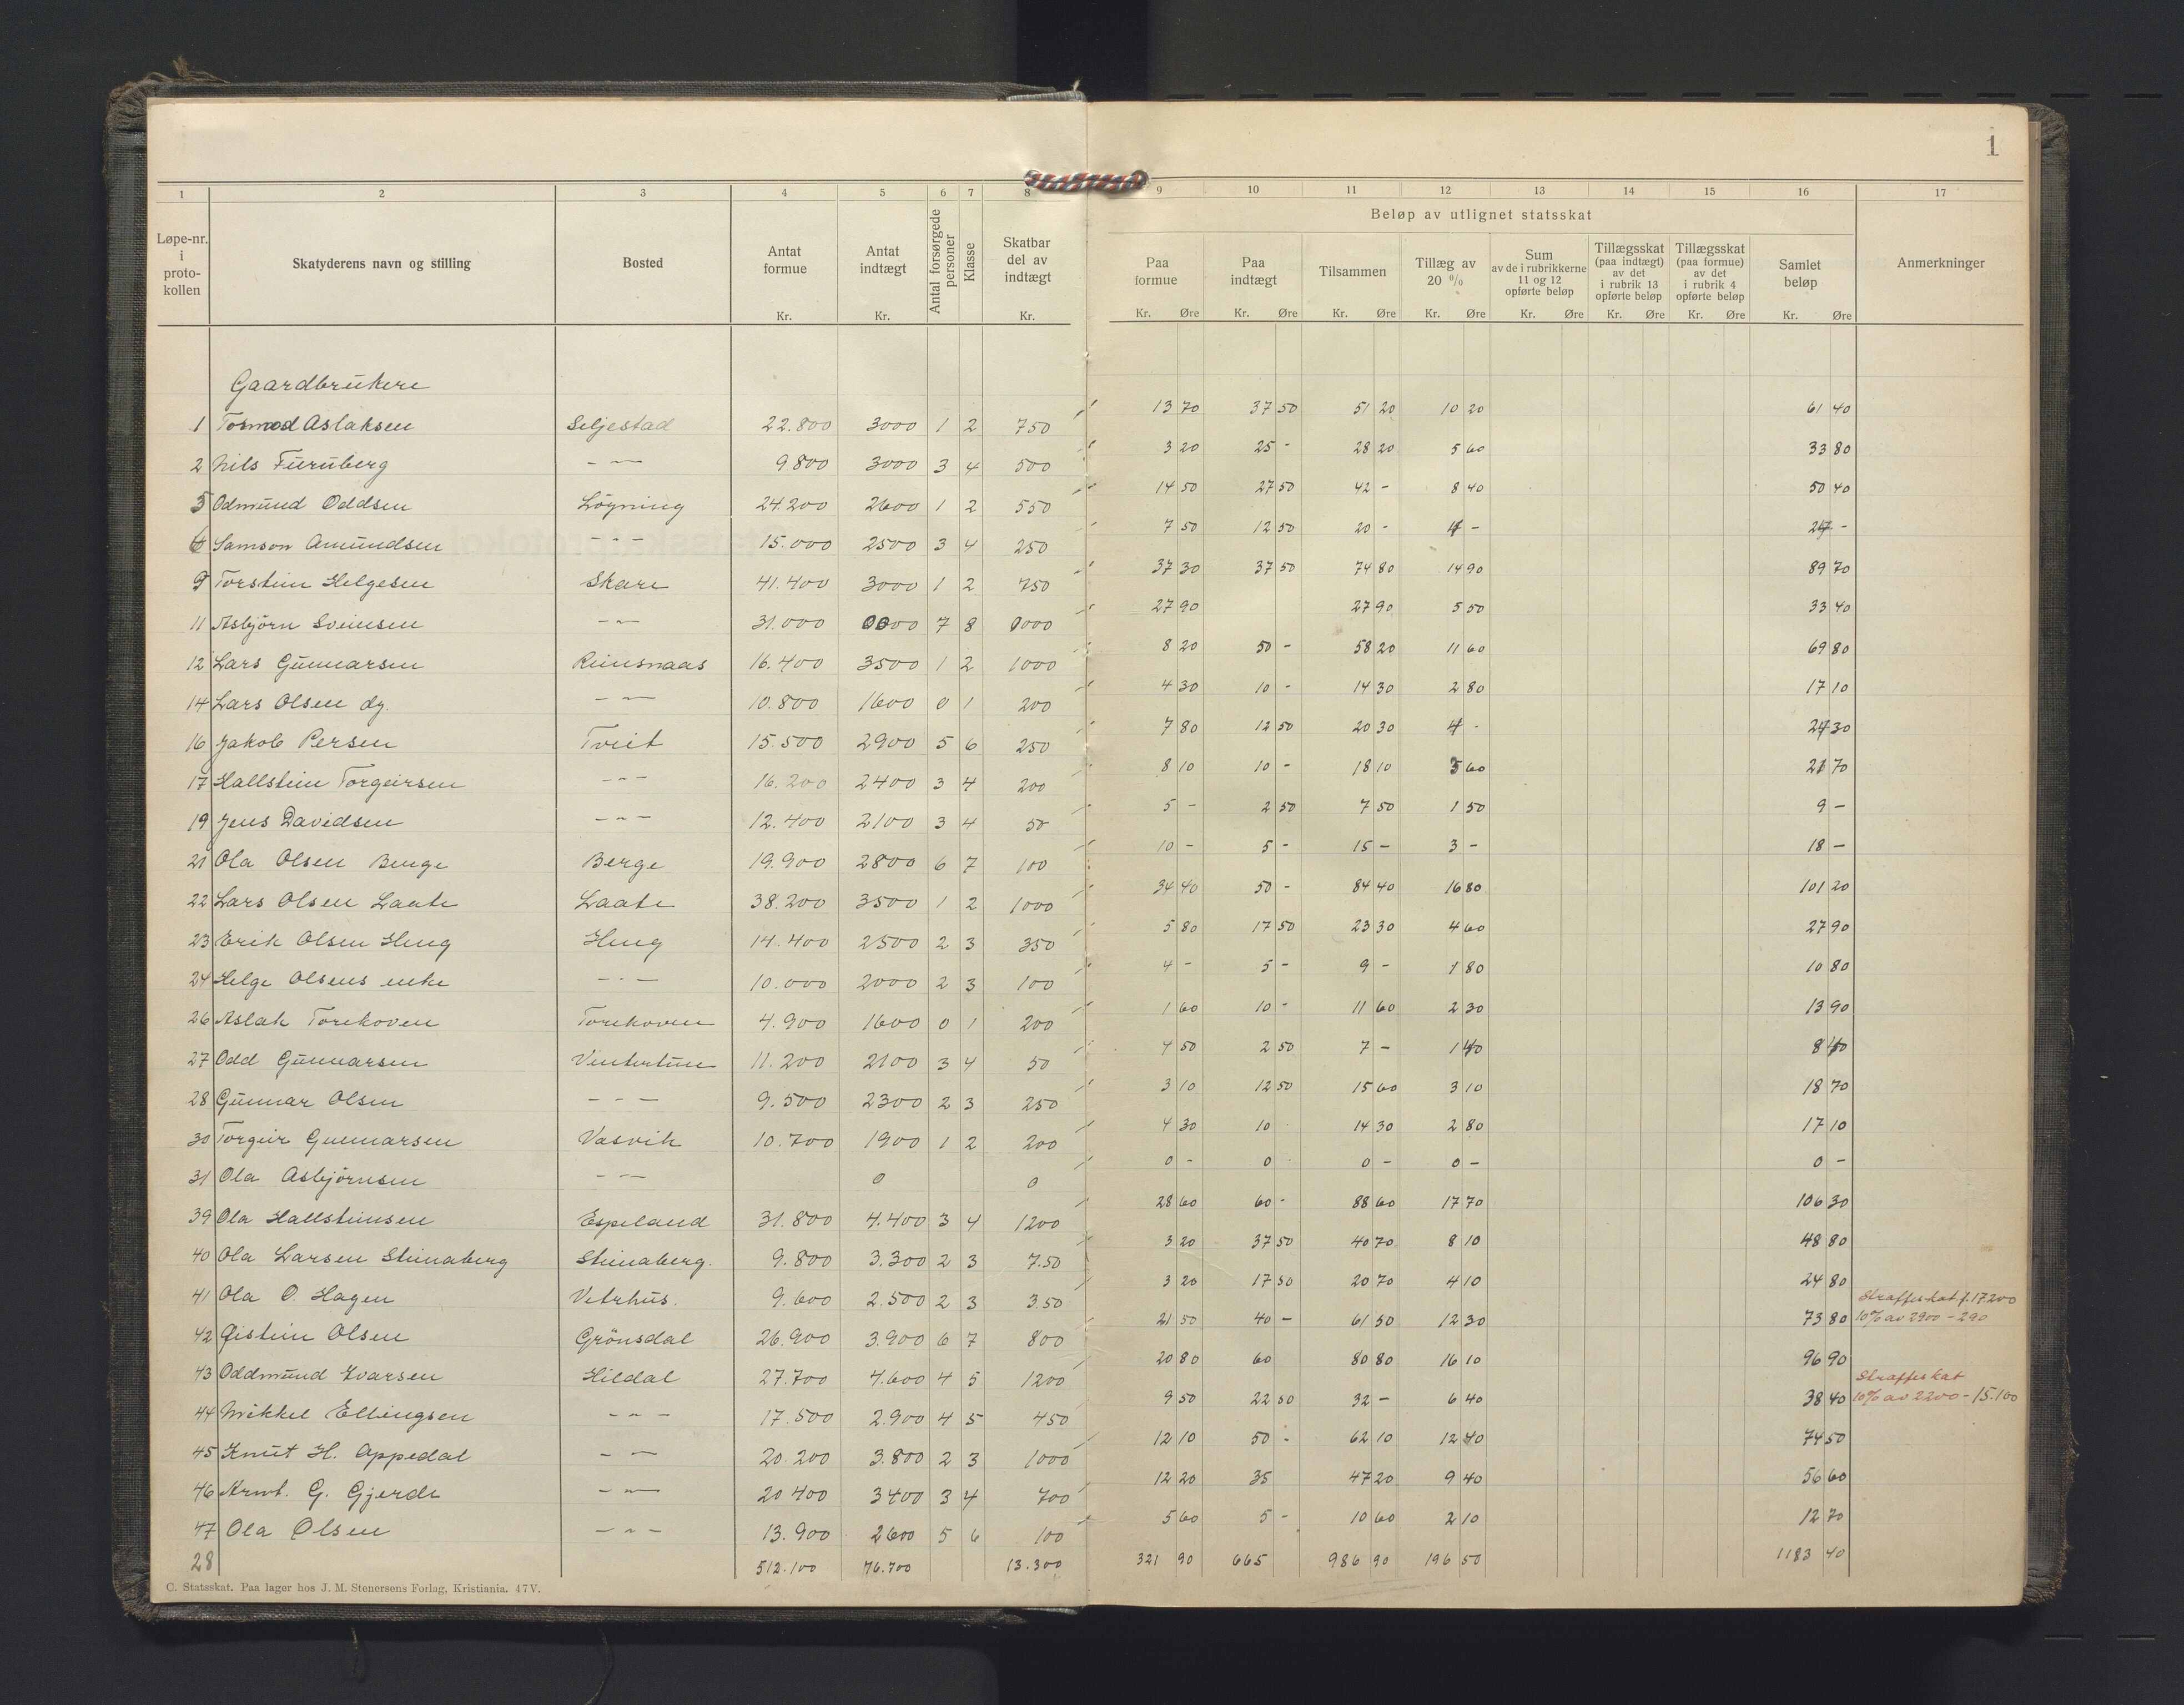 1
1 2 3 4 5 6 7 8 9 10 11 12 13 14 15 16 17
Løpe-nr. i proto-kollen | Skatyderens navn og stilling | Bosted | Antat formue Kr. | Antat indtægt Kr. | Antal forsørgede personer | Klasse | Skatbar del av indtægt Kr. | Beløp av utlignet statsskat | Paa formue Kr. Øre | Paa indtægt Kr. Øre | Tilsammen Kr. Øre | Tillæg av 20 % Kr. Øre | Sum av de i rubrikkerne 11 og 12 opførte beløp Kr. Øre | Tillægsskat (paa indtægt) av det i rubrik 13 opførte beløp Kr. Øre | Tillægsskat (paa formue) av det i rubrik 4 opførte beløp Kr. Øre | Samlet beløp Kr. Øre | Anmerkninger
Gaardbrukere
1 Tormod Aslaksen Seljestad 22.800 3000 1 2 750 13 70 37 50 51 20 10 20 61 40
2 Nils Furuberg - " - 9.800 3000 3 4 500 3 20 25 - 28 20 5 60 33 80
5 Odmund Oddsen Löyning 24.200 2600 1 2 550 14 50 27 50 42 - 8 40 50 40
6 Samson Amundsen - " - 15.000 2500 3 4 250 7 50 12 50 20 - 4 - 24 -
9 Torstein Helgesen Skare 41.400 3000 1 2 750 37 30 37 50 74 80 14 90 89 70
11 Asbjörn Sveinsen - " - 31.000 0000 7 8 0000 27 90 27 90 5 50 33 40
12 Lars Gunnarsen Reinsnaas 16.400 3500 1 2 1000 8 20 50 - 58 20 11 60 69 80
14 Lars Olsen dy. - " - 10.800 1600 0 1 200 4 30 10 - 14 30 2 80 17 10
16 Jakob Persen Tveit 15.500 2900 5 6 250 7 80 12 50 20 30 4 - 24 30
17 Hallstein Torgeirsen - " - 16.200 2400 3 4 200 8 10 10 - 18 10 3 60 21 70
19 Jens Davidsen - " - 12.400 2100 3 4 50 5 - 2 50 7 50 1 50 9 -
21 Ola Olsen Berge Berge 19.900 2800 6 7 100 10 - 5 - 15 - 3 - 18 -
22 Lars Olsen Laate Laate 38.200 3500 1 2 1000 34 40 50 - 84 40 16 80 101 20
23 Erik Olsen Heug Heug 14.400 2500 2 3 350 5 80 17 50 23 30 4 60 27 90
24 Helge Olsens enke - " - 10.000 2000 2 3 100 4 - 5 - 9 - 1 80 10 80
26 Aslak Torekoven Torekoven 4.900 1600 0 1 200 1 60 10 - 11 60 2 30 13 90
27 Odd Gunnarsen Vintertun 11.200 2100 3 4 50 4 50 2 50 7 - 1 40 8 40
28 Gunnar Olsen - " - 9.500 2300 2 3 250 3 10 12 50 15 60 3 10 18 70
30 Torgeir Gunnarsen Vasvik 10.700 1900 1 2 200 4 30 10 14 30 2 80 17 10
31 Ola Asbjörnsen - " - 0 0 0 - 0 0 - 0 - 0 -
39 Ola Hallsteinsen Espeland 31.800 4.400 3 4 1200 28 60 60 - 88 60 17 70 106 30
40 Ola Larsen Steinaberg Steinaberg. 9.800 3.300 2 3 7.50 3 20 37 50 40 70 8 10 48 80
41 Ola O. Hagen Vetrhus. 9.600 2.500 2 3 3.50 3 20 17 50 20 70 4 10 24 80
Straffeskat f. 17200
42 Øistein Olsen Grönsdal 26.900 3.900 6 7 800 21 50 40 - 61 50 12 30 73 80 10% av 2900 - 290
43 Oddmund Ivarsen Hildal 27.700 4.600 4 5 1200 20 80 60 80 80 16 10 96 90
Straffeskat
44 Mikkel Ellingsen - " - 17.500 2.900 4 5 450 9 50 22 50 32 - 6 40 38 40 10% av 2200 - 15.100
45 Knut H. Appedal - " - 20.200 3.800 2 3 1000 12 10 50 - 62 10 12 40 74 50
46 G. Gjerde - " - 20 400 3400 3 4 700 12 20 35 47 20 9 40 56 60
47 Ola Olsen - " - 13.900 2600 5 6 100 5 60 5 - 10 60 2 10 12 70
28 512.100 76.700 13.300 321 90 665 986 90 196 50 1183 40
C. Statsskat. Paa lager hos J. M. Stenersens Forlag, Kristiania. 47V.